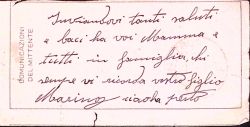 COMUNICAZIONI
DEL MITTENTE
Inviandovi tanti saluti
e baci ha voi Mamma e
tutti in famiglia, chi
sempre vi ricorda vostro figlio
Marino presto